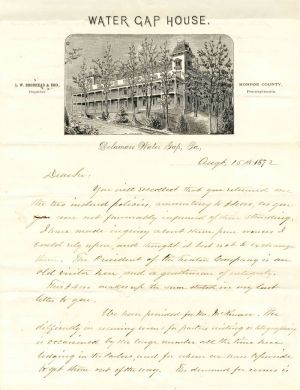 WATER GAP HOUSE.
L. W. BRODHEAD & BRO.,
MONROE COUNTY,
Pennsylvania
Delaware Water Gap, Pa.,
Augt. 15th 1872
Dear Sir:
You will recollect that you returned me
the two inclosed policies, amounting to as you
were not favorably impressed of their standing.
I have made inquiry about them from sources I
could rely upon, and thought it best not to exchange
them. The President of the Company is an
old visitor here, and a gentleman of integrity.
makes up the sum stated in my last
letter to you.
We have provided for Mr. McKinnon. The
difficulty in securing rooms for parties writing or telegraphing
is occasioned by the large number all the time here
lodging in the Parlors, and for whom we must provide
to get them out of the way. The demand for rooms is